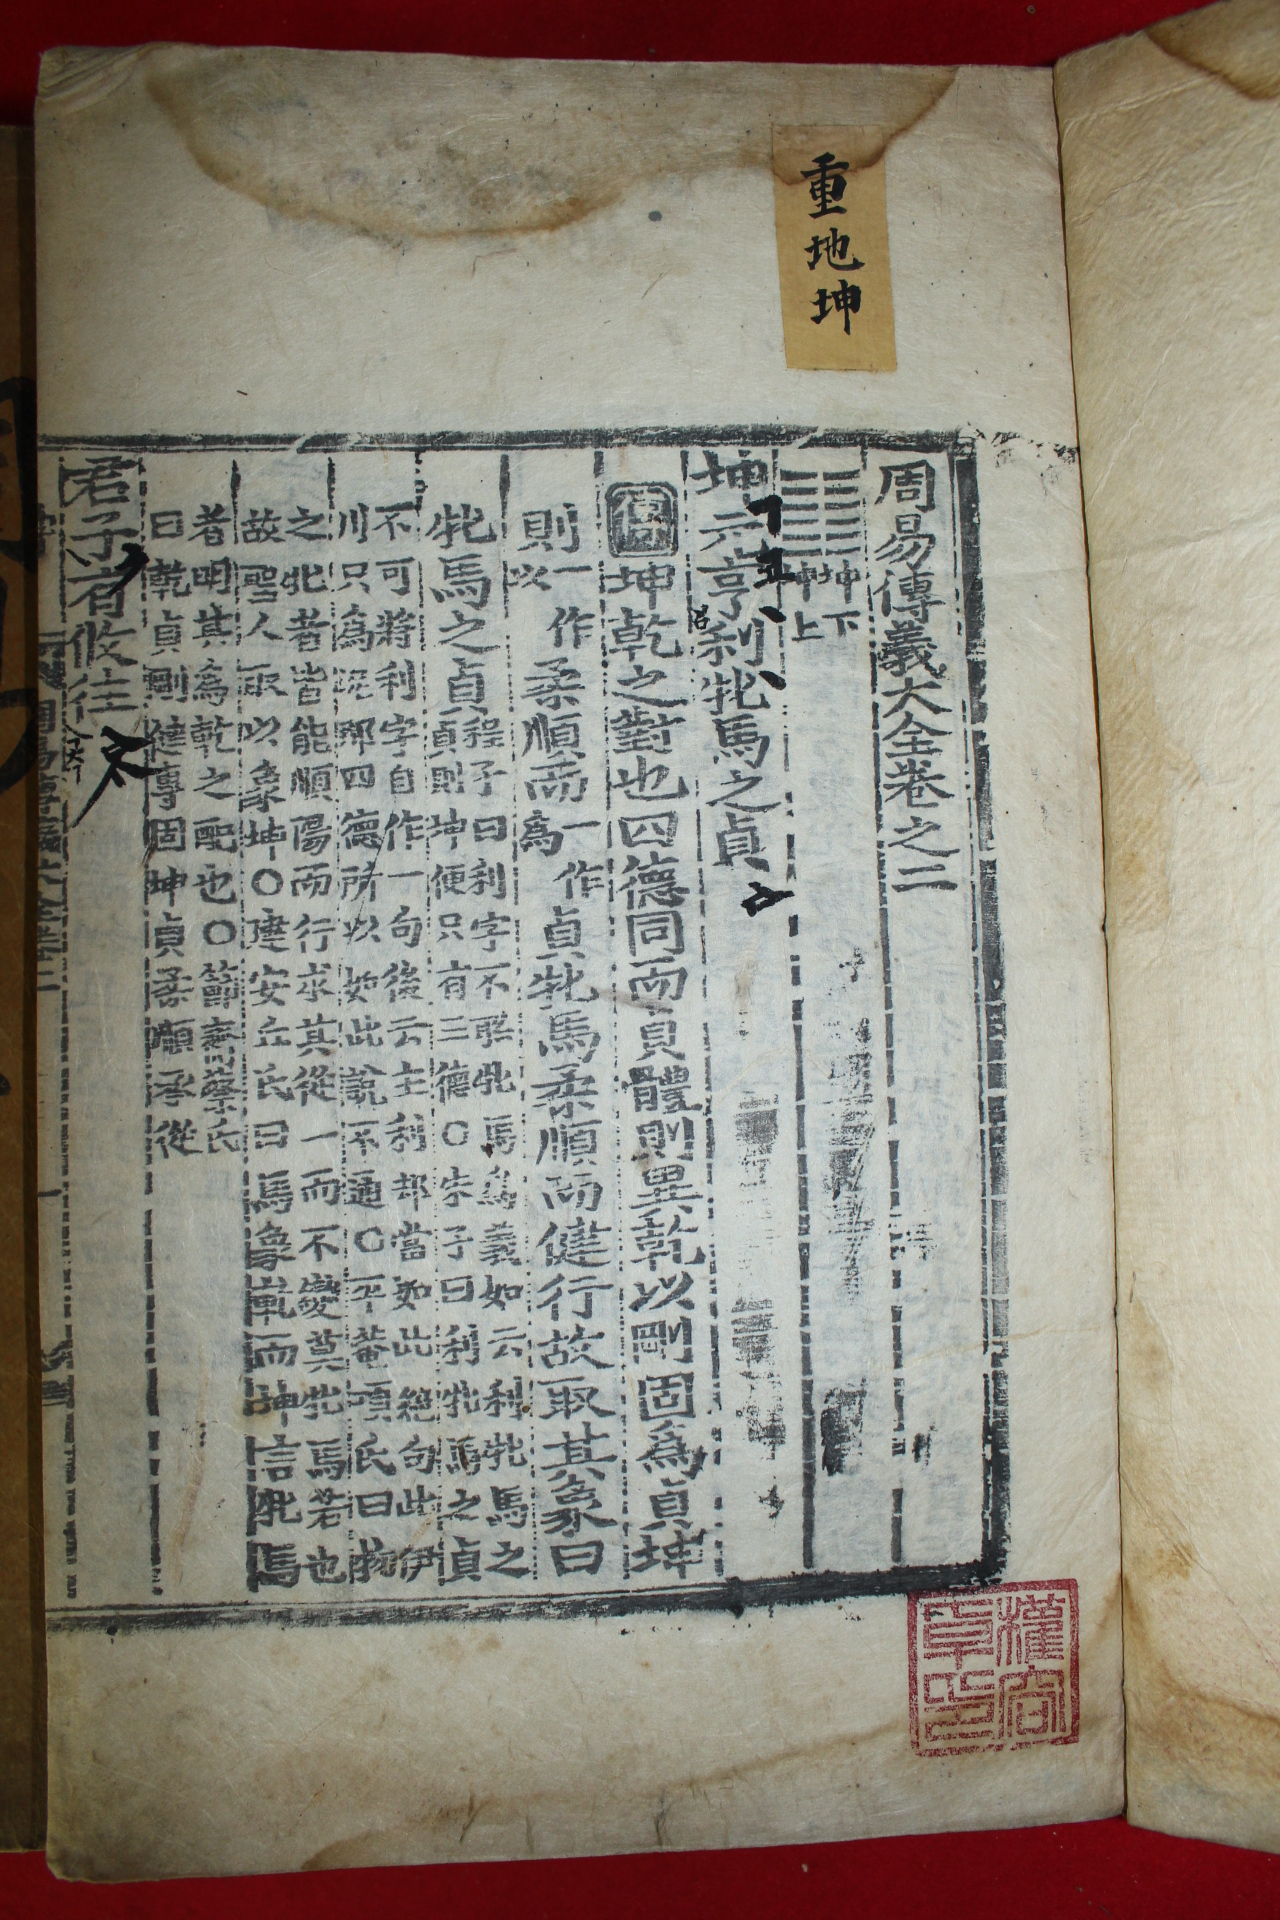 重地坤
周易傳義大全卷之二
坤下
坤上
坤元亨利牝馬之貞
傳坤乾之對也四德同而貞體則異乾以剛固為貞坤
則一作以柔順而一作為貞牝馬柔順而健行故取其象曰
牝馬之貞程子曰利字不聯牝馬為義如云利牝馬之
貞則坤便只有三德○朱子曰利牝馬之貞
不可將利字自作一句後云主利却當如此絶句此伊
川只為泥那四德所以如此說不通○平菴項氏曰物
之牝者皆能順陽而行求其從一而不變莫牝馬若也
故聖人取以象坤○建安丘氏曰馬象乾而坤言牝馬
者明其為乾之配也○節齋蔡氏
曰乾貞剛健專固坤貞柔順承從
君子有攸往
周易傳義大全卷二
一